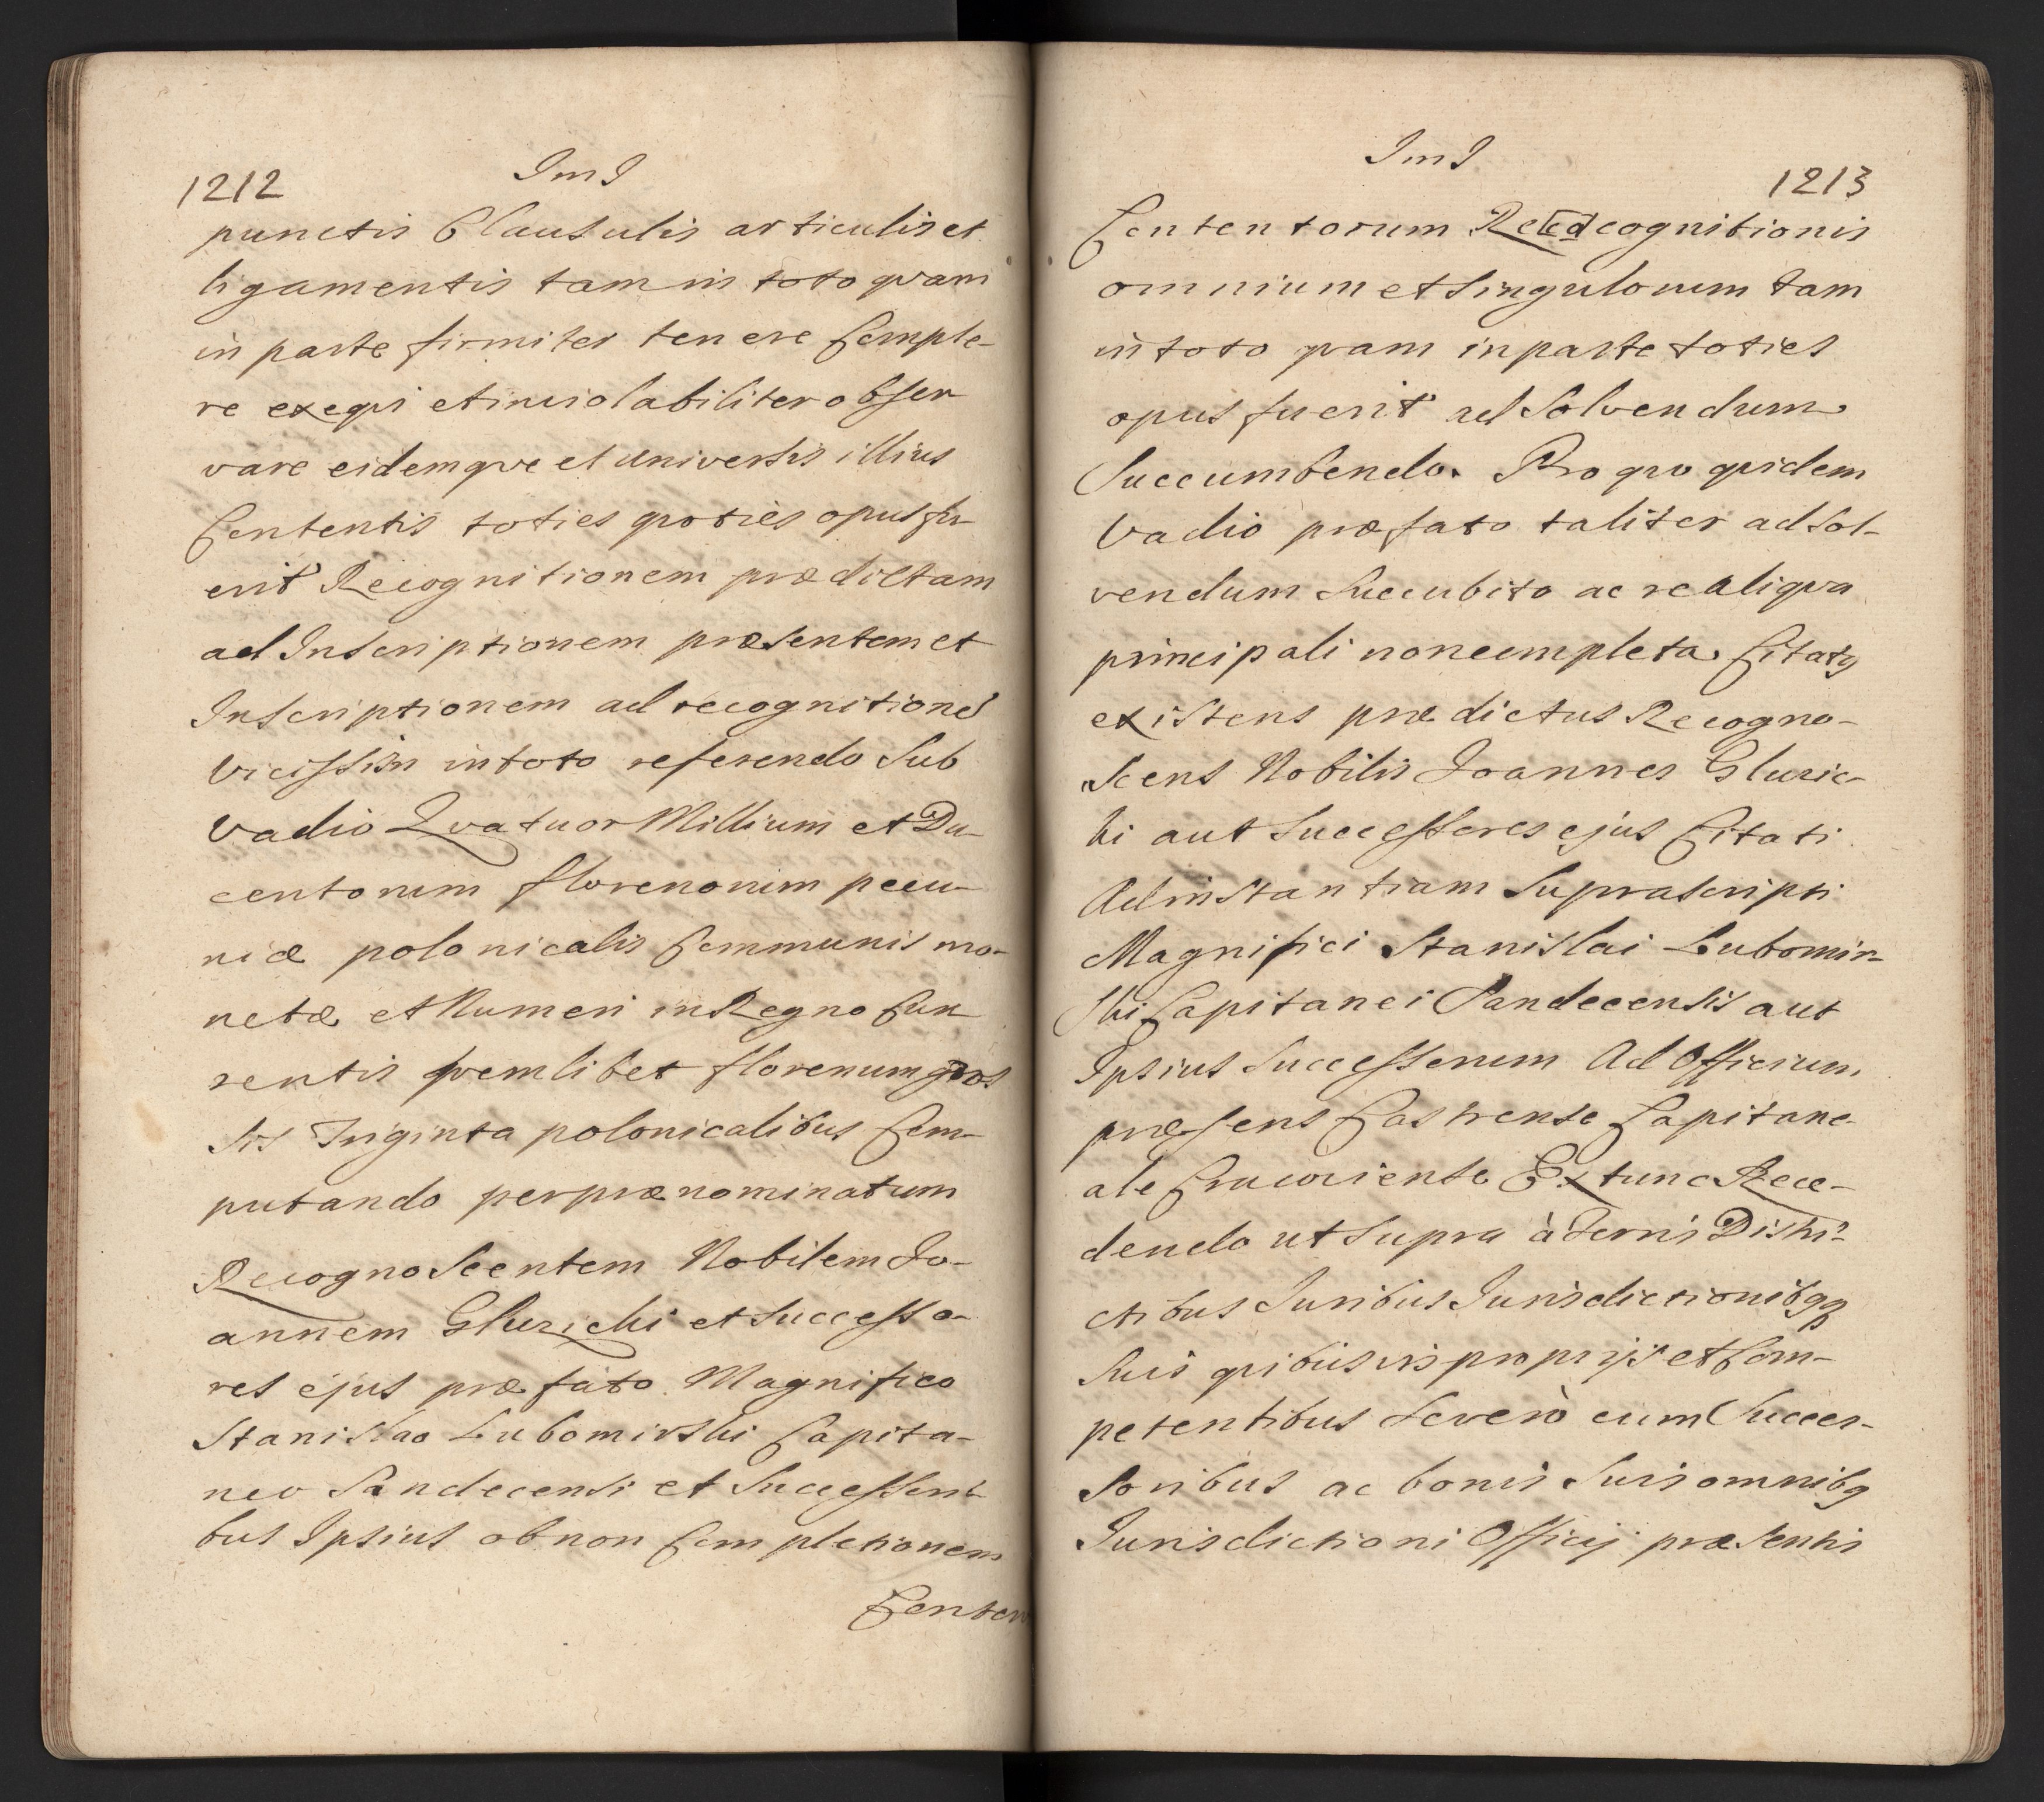 1212
ImI
punctis Clausulis articulis et
ligamentis tam in toto qvam
in parte firmiter tenere Comple-
re exeqvi et inviolabiliter obser
vare eidemqve et universis illius
Contentis toties qvoties opus fu-
erit Recognitionem prædictam
ad Inscriptionem præsentem et
Inscriptionem ad recognitione
vicissim in toto referendo Sub
vadio Qvatuor Millium et Du-
centorum florenorum pecu-
niæ polonicalis Communis mo-
netæ et Numeri in Regno Cur
rentis qvemlibet florenum gros
sis Triginta polonicalibus Com-
putando per prænominatum
Recognoscentem Nobilem Jo-
annem Gluzicki et Successo-
res ejus præfato Magnifico
Stanislao Lubomirski Capita-
neo Sandecensi et Successori-
bus Ipsius ob non Completionem
Conten
ImI
1213
Contentorum Re[cd]cognitionis
omnium et Singulorum tam
in toto qvam in parte toties
opus fuerit ad Solvendum
Succumbendo. Pro qvo qvidem
Vadio præfato taliter ad Sol-
vendum Succubito ac re aliqva
principali non completa Citatq
existens prædictus Recogno-
scens Nobilis Joannes Gluzic-
ki aut Successores ejus Citati
Ad instantiam Suprascripti
Magnifici Stanislai Lubomir-
ski Capitanei Sandecensis aut
Ipsius Successorum Ad Officium
præsens Castrense Capitane-
ale Cracoviense Extunc Rece-
dendo ut Supra à Terris Distri-
ctibus Juribus Jurisdictionibqq
Suis qvibusvis proprijs et Com-
petentibus Se verò cum Succes-
soribus ac bonis Suis omnibq
Jurisdictioni Officij præsentis